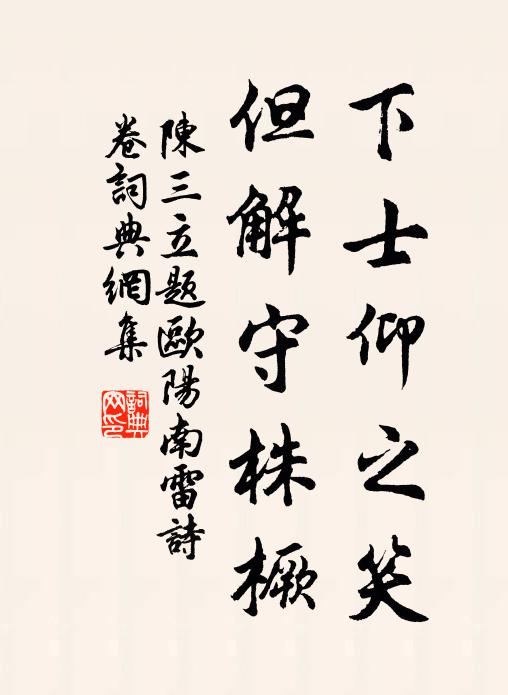 下士仰之笑
但解守株橛
陳三立題歐陽南雷詩
卷詞典網集
詞典
网印